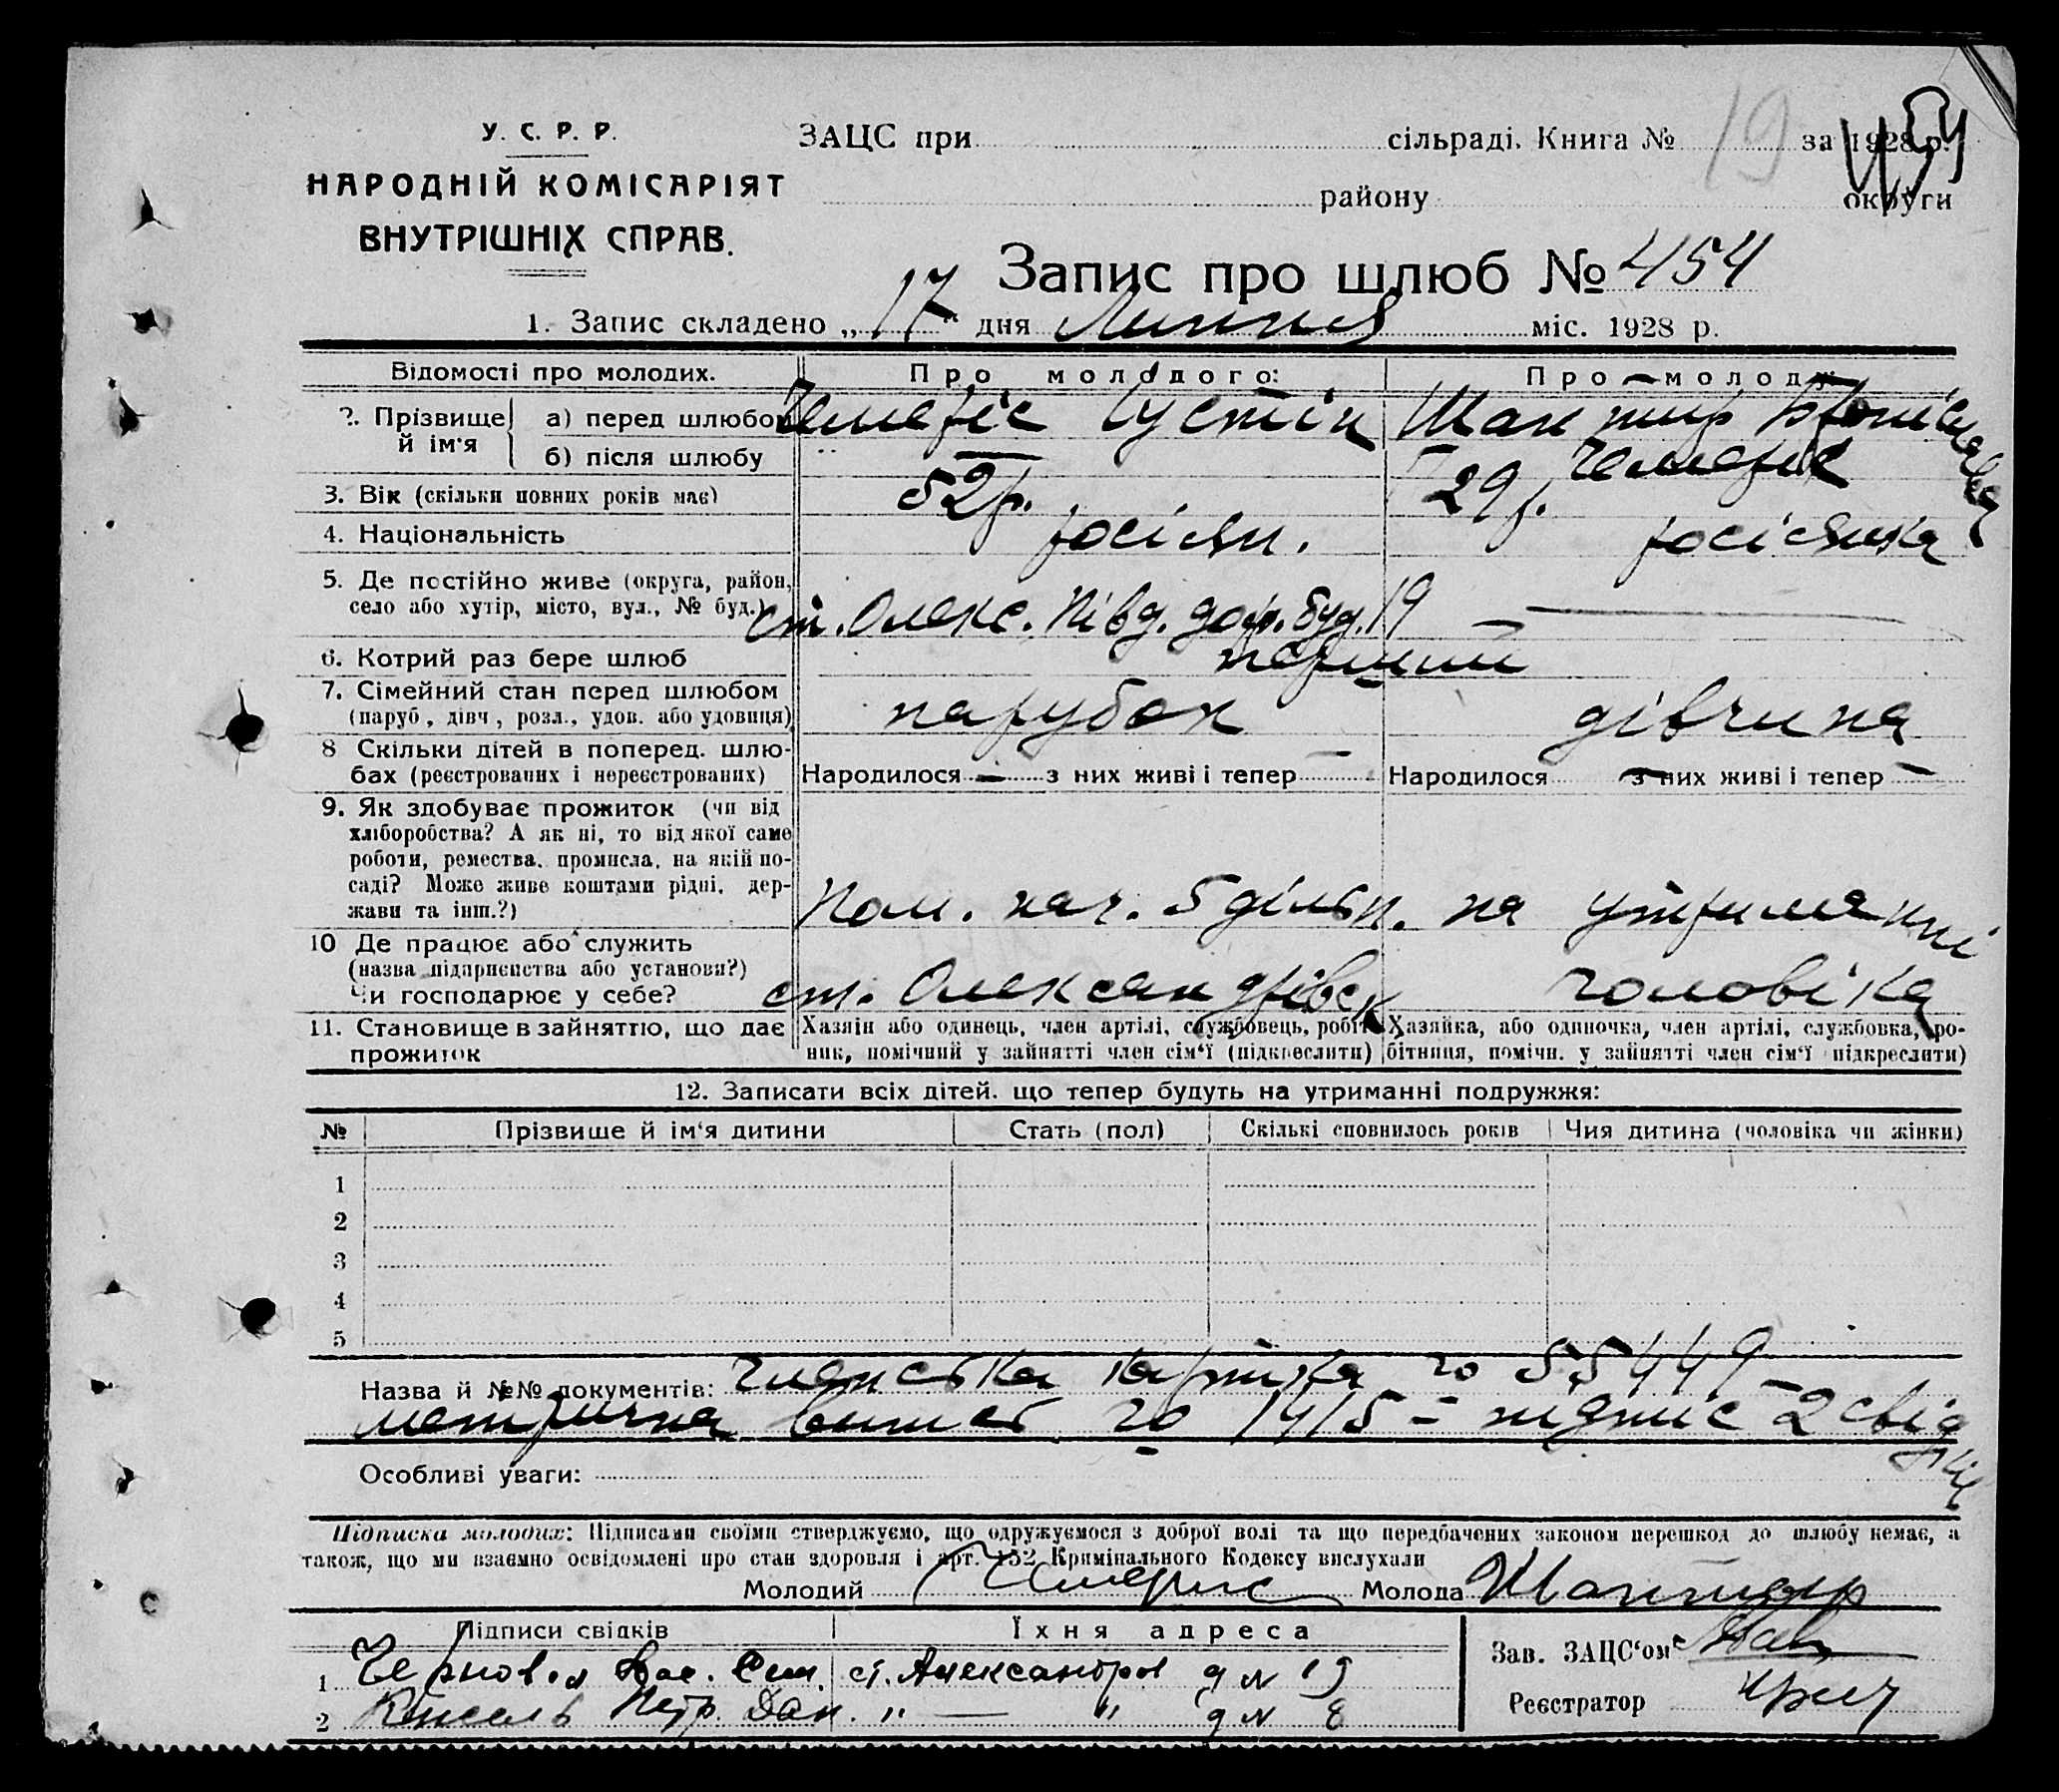 У. С. Р. Р.
НАРОДНІЙ КОМІСАРІЯТ
ВНУТРІШНІХ СПРАВ.
ЗАЦС при сільраді. Книга № 19 за 1928 р.
району округи
454
Запис про шлюб № 454
1. Запис складено „17" дня Липня міс. 1928 р.
Відомості про молодих. Про молодого: Про молоду:
2. Прізвище й ім'я
а) перед шлюбом Густін Шантир Броніслава
б) після шлюбу
3. Вік (скільки повних років має) 52 р. 29 р.
4. Національність росіян. росіянка
5. Де постійно живе (округа, район, село або хутір, місто, вул., № буд.) ст. Олекс. Півд. дор. буд. 19 —
6. Котрий раз бере шлюб перший
7. Сімейний стан перед шлюбом (паруб., дівч., розл., удов. або удовиця) парубок дівчина
8 Скільки дітей в поперед. шлюбах (реєстрованих і нереєстрованих) Народилося — з них живі і тепер — Народилося — з них живі і тепер —
9. Як здобуває прожиток (чи від хліборобства? А як ні, то від якої саме роботи, ремества, промисла, на якій посаді? Може живе коштами рідні, держави та інш.?) Пом. нач. 5 дільн. на утриманні
10 Де працює або служить (назва підприємства або установи?) Чи господарює у себе? ст. Олександрівськ чоловіка
11. Становище в зайняттю, що дає прожиток Хазяїн або одинець, член артілі, службовець, робітник, помічний у зайнятті член сім'ї (підкреслити) Хазяйка, або одиночка, член артілі, службовка, робітниця, помічн. у зайнятті член сім'ї підкреслити)
12. Записати всіх дітей, що тепер будуть на утриманні подружжя:
№ Прізвише й ім'я дитини Стать (пол) Скількі сповнилось років Чия дитина (чоловіка чи жінки)
1
2
3
4
5
Назва й №№ документів: членська картка 55449
метрична випис 1415 = підпис 2 свідків
Особливі уваги:
Підписка молодих: Підписами своїми стверджуємо, що одружуємося з доброї волі та що передбачених законом перешкод до шлюбу немає, а
також, що ми взаємно освідомлені про стан здоровля і арт. 152 Кримінального Кодексу вислухали
Молодий Молода Шантыр
Підписи свідків Їхня адреса
1 Вас. ст. Александров д № 19
2 Кисель Петр. Дан. „ — „ д № 8
Зав. ЗАЦС'ом
Реєстратор